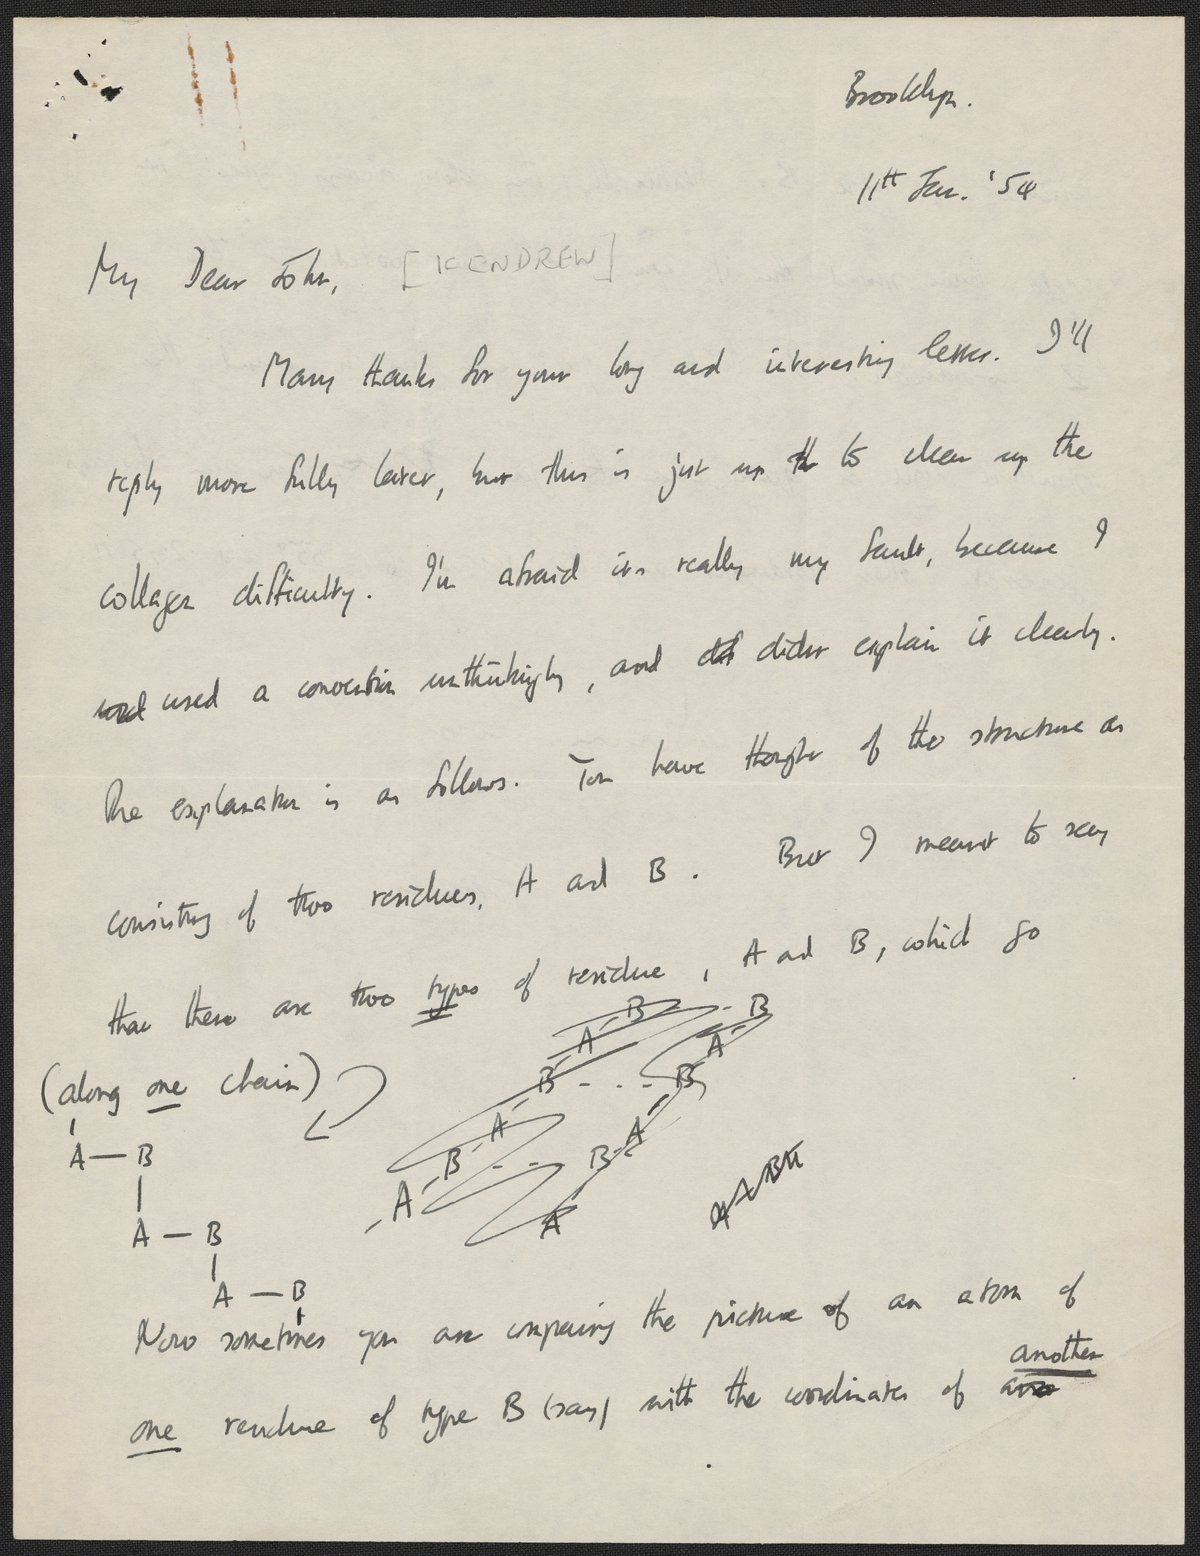 Brooklyn.
11th Jan. '54
My Dear John, [KENDREW]
Many thanks for your long and interesting letter. I'll
reply more fully later, but this is just up to clear up the
collagen difficulty. I'm afraid its really my fault, because I
used a convention unthinkingly, and didn't explain it clearly.
The explanation is as follows. You have thought of the structure as
consisting of two residues, A and B. But I meant to say
that there are two types of residue, A and B, which go
(along one chain)
A — B
A — B
A — B
B B
A A
B - . . - B
A A
B - . - B
A A
Now sometimes you are comparing the picture of an atom of
one residue of type B (say) with the coordinates of another